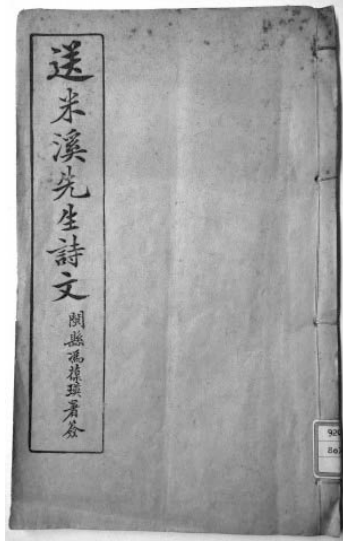 送米溪先生詩文
閩縣馮葆瑛署簽
920